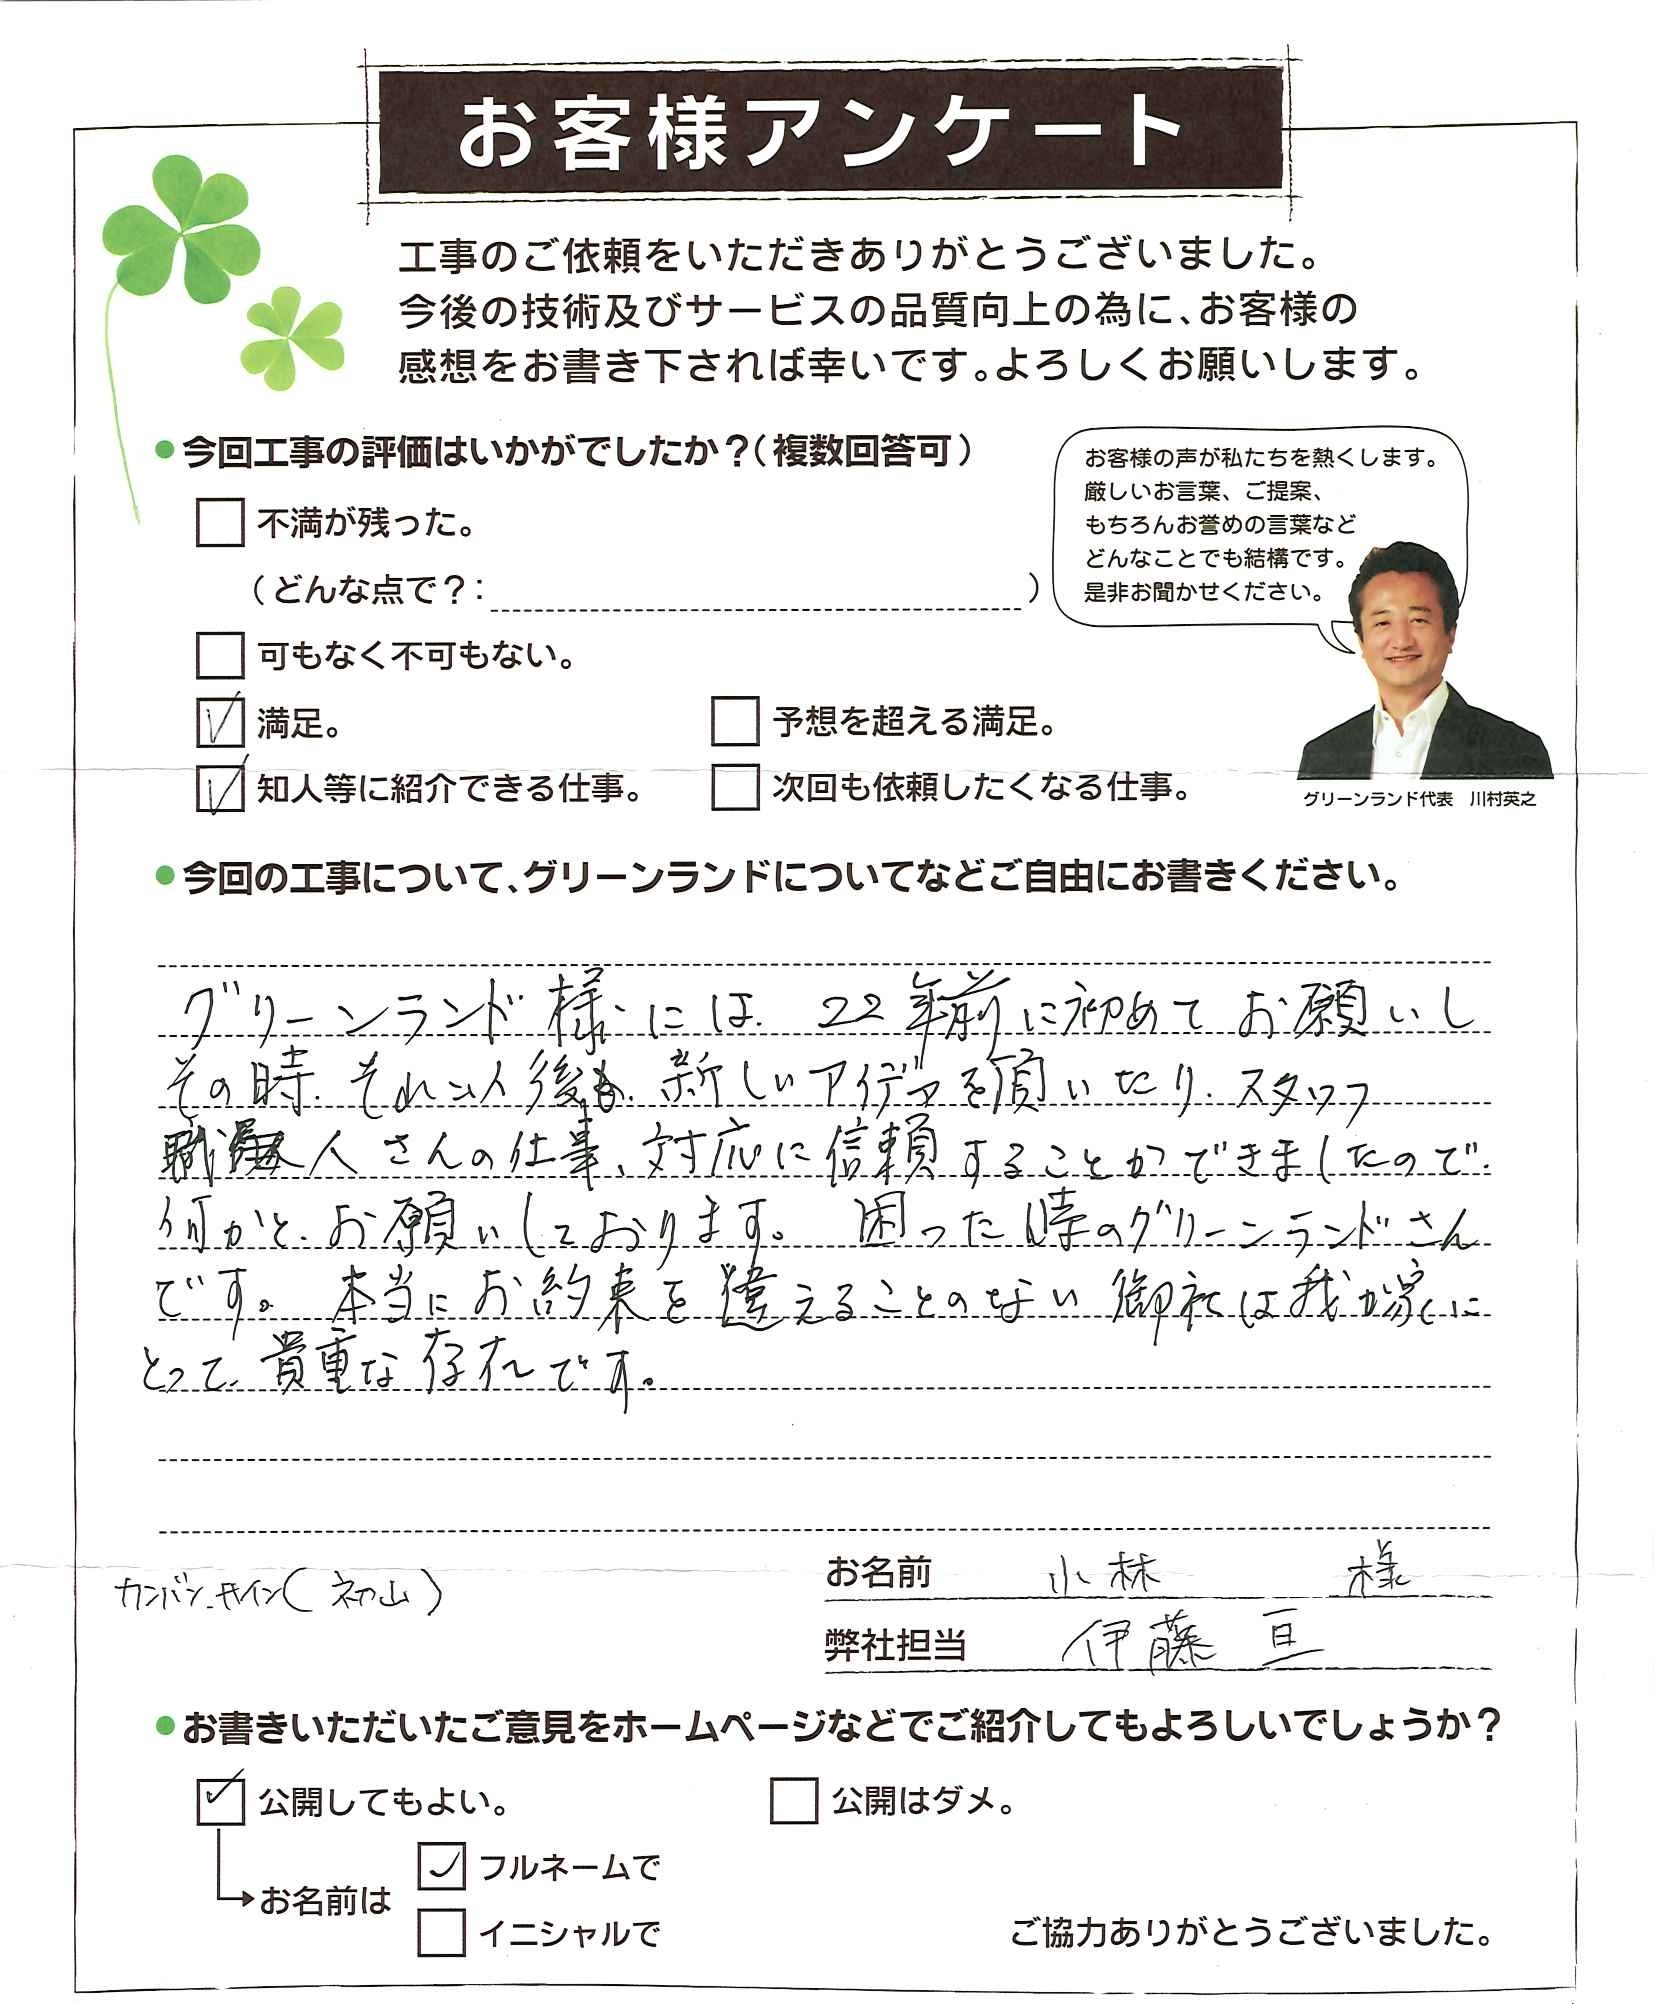 お客様アンケート
工事のご依頼をいただきありがとうございました。
今後の技術及びサービスの品質向上の為に、お客様の
感想をお書き下されば幸いです。よろしくお願いします。
●今回工事の評価はいかがでしたか？（複数回答可）
不満が残った。
（どんな点で？：　）
可もなく不可もない。
満足。
予想を超える満足。
知人等に紹介できる仕事。
次回も依頼したくなる仕事。
お客様の声が私たちを熱くします。
厳しいお言葉、ご提案、
もちろんお誉めの言葉など
どんなことでも結構です。
是非お聞かせください。
グリーンランド代表　川村英之
●今回の工事について、グリーンランドについてなどご自由にお書きください。
グリーンランド様には、22年前に初めてお願いし
その時、それ以後も、新しいアイデアを頂いたり、スタッフ
職人さんの仕事、対応に信頼することができましたので、
何かと、お願いしております。困った時のグリーンランドさん
です。本当にお約束を違えることのない御社は我が家に
とって、貴重な存在です。
カンバン、サイン（初山）
お名前　小林　様
弊社担当　伊藤 亘
●お書きいただいたご意見をホームページなどでご紹介してもよろしいでしょうか？
公開してもよい。
公開はダメ。
お名前は
フルネームで
イニシャルで
ご協力ありがとうございました。